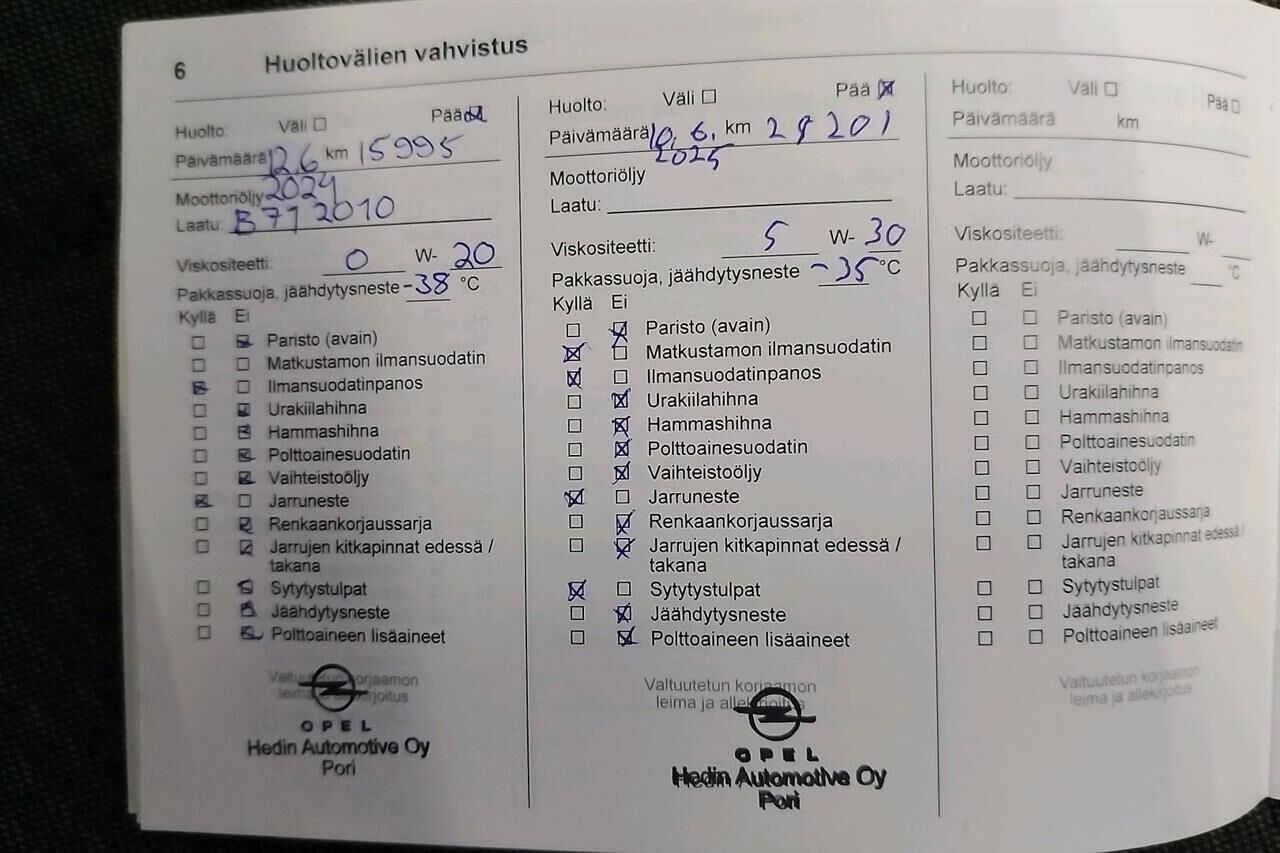 6 Huoltovälien vahvistus
Huolto: Väli Pää
Päivämäärä 12.6 km 15995
2024
Moottoriöljy
Laatu: B71 2010
Viskositeetti: 0 W- 20
Pakkassuoja, jäähdytysneste -38 °C
Kyllä Ei
Paristo (avain)
Matkustamon ilmansuodatin
Ilmansuodatinpanos
Urakiilahihna
Hammashihna
Polttoainesuodatin
Vaihteistoöljy
Jarruneste
Renkaankorjaussarja
Jarrujen kitkapinnat edessä /
takana
Sytytystulpat
Jäähdytysneste
Polttoaineen lisäaineet
Valtuutetun korjaamon
leima ja allekirjoitus
OPEL
Hedin Automotive Oy
Pori
Huolto: Väli Pää
Päivämäärä 10.6. km 29201
2025
Moottoriöljy
Laatu:
Viskositeetti: 5 W- 30
Pakkassuoja, jäähdytysneste -35 °C
Kyllä Ei
Paristo (avain)
Matkustamon ilmansuodatin
Ilmansuodatinpanos
Urakiilahihna
Hammashihna
Polttoainesuodatin
Vaihteistoöljy
Jarruneste
Renkaankorjaussarja
Jarrujen kitkapinnat edessä /
takana
Sytytystulpat
Jäähdytysneste
Polttoaineen lisäaineet
Valtuutetun korjaamon
leima ja allekirjoitus
OPEL
Hedin Automotive Oy
Pori
Huolto: Väli Pää
Päivämäärä km
Moottoriöljy
Laatu:
Viskositeetti: W-
Pakkassuoja, jäähdytysneste °C
Kyllä Ei
Paristo (avain)
Matkustamon ilmansuodatin
Ilmansuodatinpanos
Urakiilahihna
Hammashihna
Polttoainesuodatin
Vaihteistoöljy
Jarruneste
Renkaankorjaussarja
Jarrujen kitkapinnat edessä /
takana
Sytytystulpat
Jäähdytysneste
Polttoaineen lisäaineet
Valtuutetun korjaamon
leima ja allekirjoitus